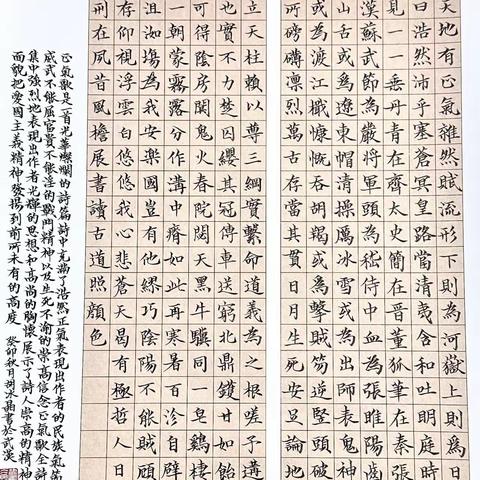 天地有正氣雜然賦流形下則為河嶽上則為日
曰浩然沛乎塞蒼冥皇路當清夷含和吐明庭時
見一一垂丹青在齊太史簡在晉董狐筆在秦張
漢蘇武節為嚴將軍頭為嵇侍中血為張睢陽齒
山舌或為遼東帽清操厲冰雪或為出師表鬼神
或為渡江楫慷慨吞胡羯或為擊賊笏逆豎頭破
所磅礴凜烈萬古存當其貫日月生死安足論地
立天柱賴以尊三綱實繫命道義為之根嗟予遘
也實不力楚囚纓其冠傳車送窮北鼎鑊甘如飴
可得陰房闃鬼火春院閟天黑牛驥同一皂雞棲
一朝蒙霧露分作溝中瘠如此再寒暑百沴自辟
沮洳場為我安樂國豈有他繆巧陰陽不能賊顧
存仰視浮雲白悠悠我心悲蒼天曷有極哲人日
刑在夙昔風檐展書讀古道照顏色
正氣歌是一首光華燦爛的詩篇詩中充滿了浩然正氣表現出作者的民族氣
威武不能屈富貴不能淫的戰鬥精神以及生死不渝的崇高信念正氣歌全詩
集中強烈地表現出作者光輝的思想和高尚的胸懷展示了詩人崇高的精神
面貌把愛國主義精神發揚到前所未有的高度 癸卯秋月 冰晶書於武漢